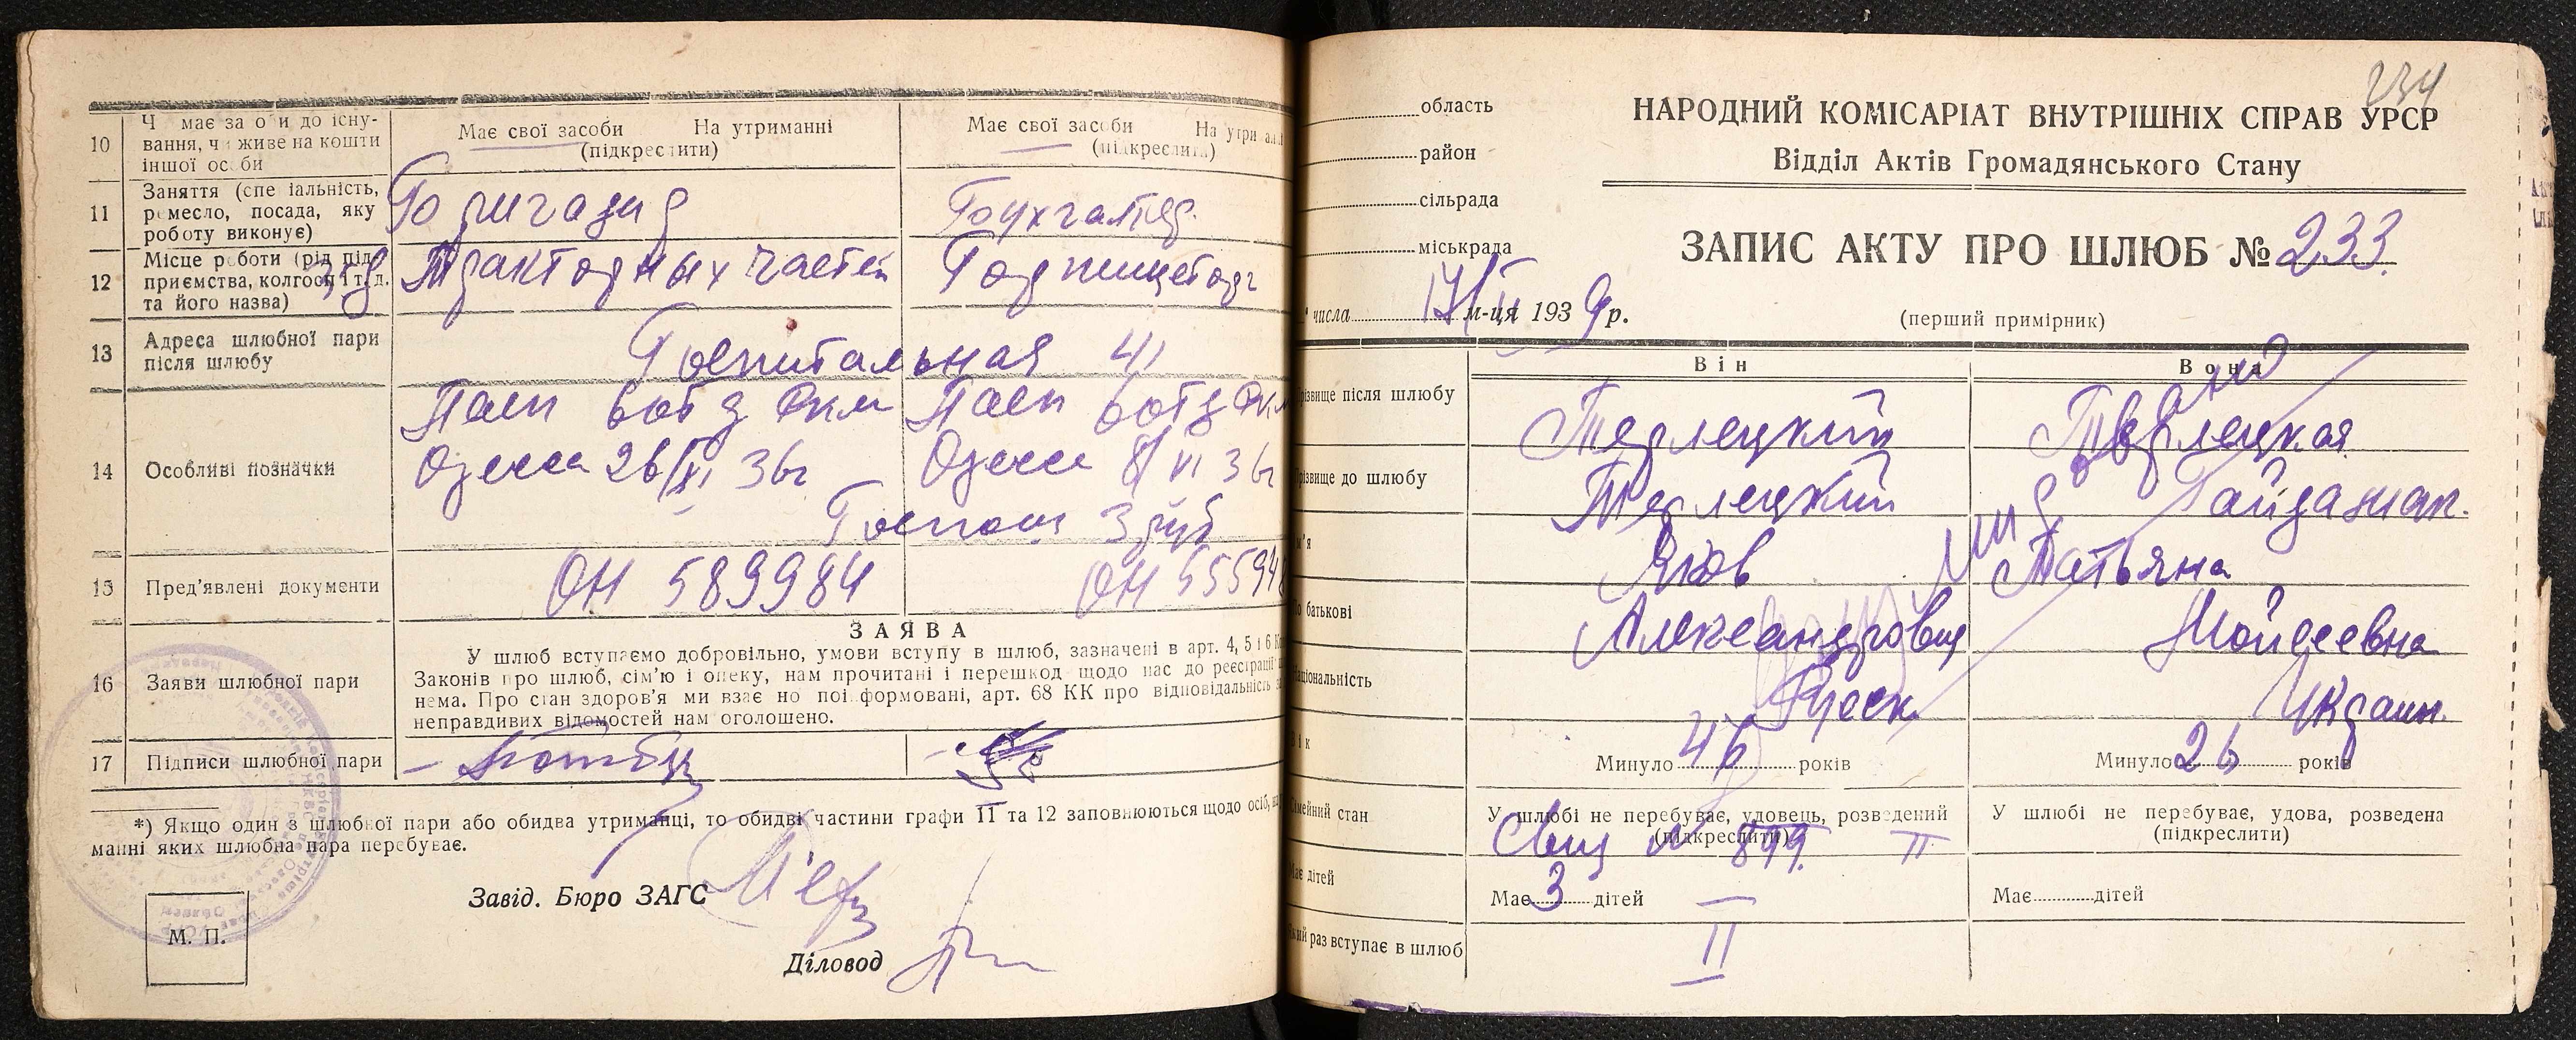 10
Має свої засоби На утриманні
(підкреслити)
Має свої засоби
вання, чи живе на кошти
іншої особи
11
Заняття (спеціальність,
ремесло, посада, яку
роботу виконує)
Бригадир
Бухгалтер
12
Місце роботи (рід під-
приємства, колгосп і т. д.
та його назва)
З-д Тракторных частей
Горпищеторг
13
Адреса шлюбної пари
після шлюбу
Госпитальная 41
14
Особливі позначки
Одесса 26/XI 36г
Одесса 8/VI 36г
Госпош 3 руб
15
Пред'явлені документи
ОН 589984
16
Заяви шлюбної пари
ЗАЯВА
У шлюб вступаємо добровільно, умови вступу в шлюб, зазначені в арт. 4, 5 і 6
Законів про шлюб, сім'ю і опеку, нам прочитані і перешкод щодо нас до реєстрації
нема. Про стан здоров'я ми взаємно поінформовані, арт. 68 КК про відповідальність
неправдивих відомостей нам оголошено.
17
Підписи шлюбної пари
*) Якщо один з шлюбної пари або обидва утриманці, то обидві частини графи 11 та 12 заповнюються щодо осіб,
манні яких шлюбна пара перебуває.
Завід. Бюро ЗАГС
М. П.
Діловод
234
область
район
сільрада
міськрада
НАРОДНИЙ КОМІСАРІАТ ВНУТРІШНІХ СПРАВ УРСР
Відділ Актів Громадянського Стану
ЗАПИС АКТУ ПРО ШЛЮБ № 233
числа 17/II м-ця 1939 р.
(перший примірник)
Він
Вона
різвище після шлюбу
Терлецкий
Терлецкая
різвище до шлюбу
Терлецкий
Яков
Татьяна
батькові
Александрович
Мойсеевна
Національність
Русск.
Украин.
Минуло 46 років
Минуло 26 років
У шлюбі не перебуває, удовець, розведений
(підкреслити)
У шлюбі не перебуває, удова, розведена
(підкреслити)
№ 899. II
Має дітей
Має 3 дітей
Має дітей
раз вступає в шлюб
II